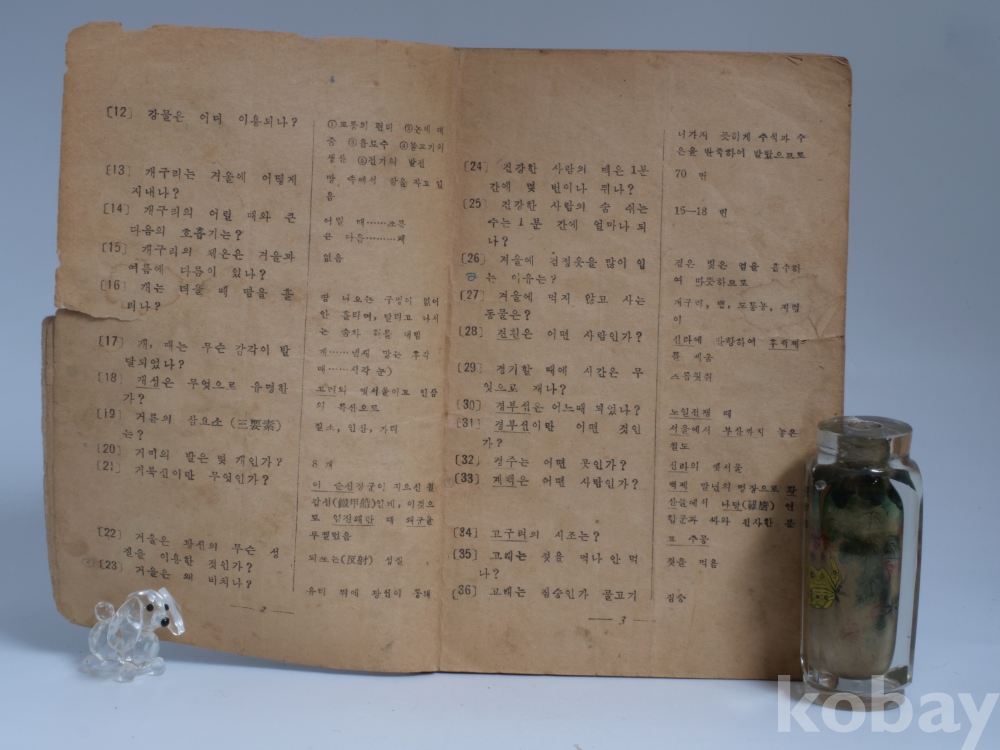 [12] 강물은 어떠 이용되나?
①교통의 편리 ②논에 대
줌 ③음료수 ④물고기의
생산 ⑤전기의 발전
[13] 개구리는 겨울에 어떻게
지내나?
땅 속에서 잠을 자고 있
음
[14] 개구리의 어릴 때와 큰
다음의 호흡기는?
어릴 때……
큰 다음………폐
[15] 개구리의 체온은 겨울과
여름에 다름이 있나?
없음
[16] 개는 더울 때 땀을 흘
리나?
땀 나오는 구멍이 없어
안 흘리며, 달리고 나서
는 숨차
[17] 개, 매는 무슨 감각이 발
달되었나?
개……냄새 맡는 후각
매……시각 눈)
[18] 개성은 무엇으로 유명한
가?
고려의 옛서울이고 인삼
의
[19] 거름의 삼요소 (三要素)
는?
질소, 인산, 가리
[20] 거미의 발은 몇 개인가?
8 개
[21] 거북선이란 무엇인가?
이 순신장군이 지으신 철
갑선(鐵甲船)인데, 이것으
로 임진왜란 때 왜구를
무찔렀음
[22] 거울은 광선의 무슨 성
질을 이용한 것인가?
되쏘는(反射) 성질
[23] 거울은 왜 비치나?
유리 뒤에 광선이 통해
— 2 —
나가지 못하게 주석과 수
은을 반죽하여 발랐으므로
[24] 건강한 사람의 맥은 1분
간에 몇 번이나 뛰나?
70 번
[25] 건강한 사람의 숨 쉬는
수는 1 분 간에 얼마나 되
나?
15—18 번
[26] 겨울에 검정옷을 많이 입
는 이유는?
검은 빛은 열을 흡수하
여 따뜻하므로
[27] 겨울에 먹지 않고 사는
동물은?
개구리, 뱀, 도롱뇽, 지렁
이
[28] 견훤은 어떤 사람인가?
신라에 반항하여 후백제
를 세움
[29] 경기할 때에 시간은 무
엇으로 재나?
스톱웟취
[30] 경부선은 어느때 되었나?
노일전쟁 때
[31] 경부선이란 어떤 것인
가?
서울에서 부산까지 놓은
철도
[32] 경주는 어떤 곳인가?
신라의 옛서울
[33] 계백은 어떤 사람인가?
백제 말년의 명장으로 황
산들에서 나당(羅唐) 연
합군과 싸와 전사한 분
[34] 고구려의 시조는?
고 주몽
[35] 고래는 젖을 먹나 안 먹
나?
젖을 먹음
[36] 고래는 짐승인가 물고기
짐승
— 3 —
kobay